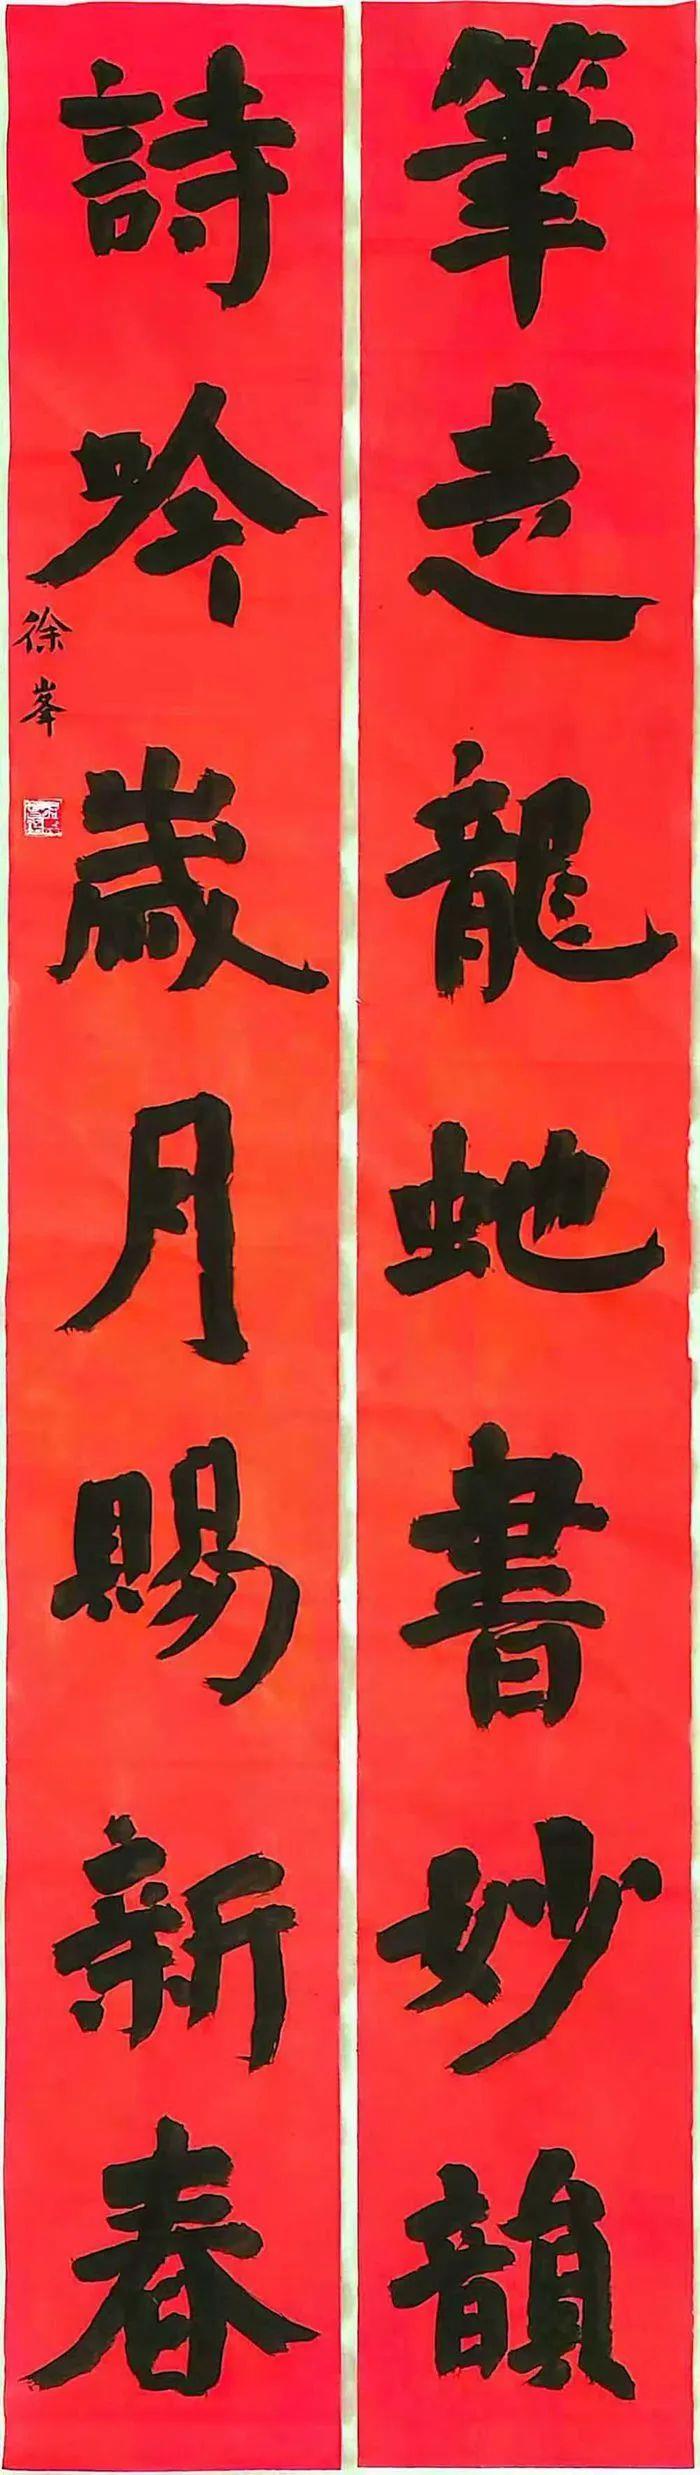 筆走龍蛇書妙韻
詩吟歲月賜新春
徐峯